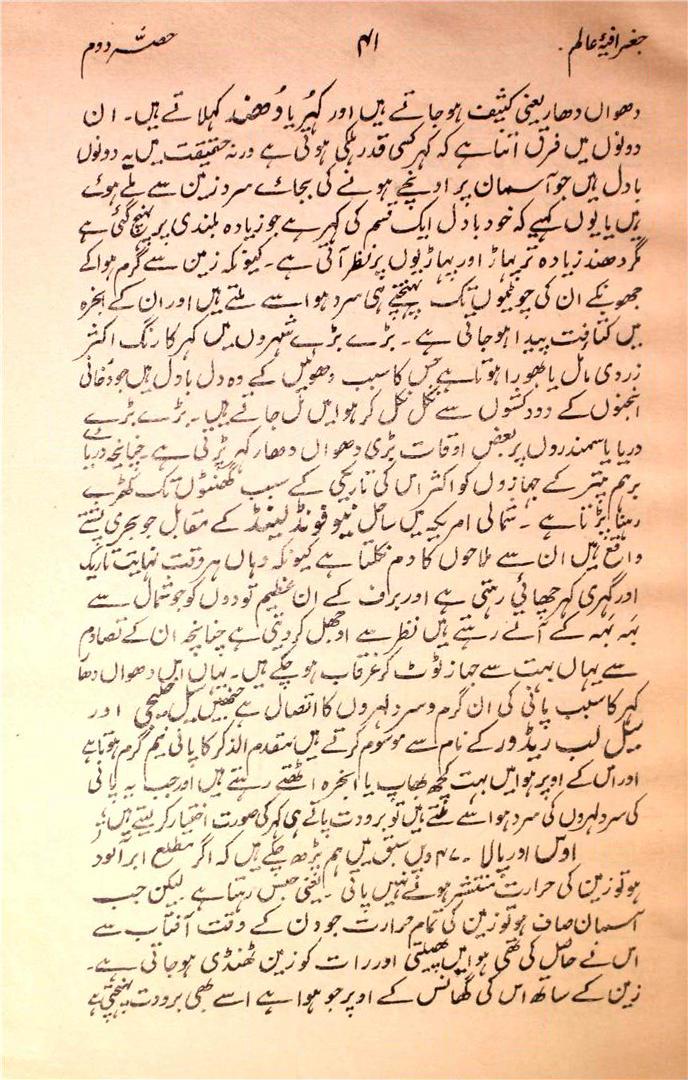 جغرافیۂ عالم
۴۱
حصہ دوم
دھواں دھار یعنی کثیف ہو جاتے ہیں اور کہُر یا دُھند کہلاتے ہیں۔ ان
دونوں میں فرق اتنا ہے کہ کہر کسی قدر ہلکی ہوتی ہے ورنہ حقیقت میں یہ دونوں
بادل ہیں جو آسمان پر اونچے ہونے کی بجائے سرد زمین سے ملے ہوئے
ہیں یا یوں کہیے کہ خود بادل ایک قسم کی کہر ہے جو زیادہ بلندی پر پہنچ گئی ہے
مگر دھند زیادہ تر پہاڑ اور پہاڑیوں پر نظر آتی ہے۔ کیونکہ زمین سے گرم ہوا کے
جھونکے ان کی چوٹیوں تک پہنچتے ہی سرد ہوا سے ملتے ہیں اور ان کے ابخرہ
میں کثافت پیدا ہو جاتی ہے۔ بڑے بڑے شہروں میں کہر کا رنگ اکثر
زردی مائل یا بھورا ہوتا ہے جس کا سبب دھوئیں کے وہ دل بادل ہیں جو دُخانی
انجنوں کے دودکشوں سے نکل نکل کر ہوا میں مل جاتے ہیں۔ بڑے بڑے
دریا یا سمندروں پر بعض اوقات بڑی دھواں دھار کہر پڑتی ہے۔ چنانچہ دریائے
برہم پتر کے جہازوں کو اکثر اس کی تاریکی کے سبب گھنٹوں تک کھڑے
رہنا پڑتا ہے۔ شمالی امریکہ میں ساحل نیو فونڈ لینڈ کے مقابل جو بحری پشتے
واقع ہیں ان سے ملاحوں کا دم نکلتا ہے کیونکہ وہاں ہر وقت نہایت تاریک
اور گہری کہر چھائی رہتی ہے اور برف کے ان عظیم تودوں کو جو شمال سے
بَہ بَہ کے آتے رہتے ہیں نظر سے اوجھل کر دیتی ہے چنانچہ ان کے تصادم
سے یہاں بہت سے جہاز ٹوٹ کر غرقاب ہو چکے ہیں۔ یہاں اس دھواں دھار
کہر کا سبب پانی کی ان گرم و سرد لہروں کا اتصال ہے جنہیں سیل خلیجی اور
سیل لب ریڈور کے نام سے موسوم کرتے ہیں متقدم الذکر کا پانی نیم گرم ہوتا ہے
اور اس کے اوپر ہوا میں بہت کچھ بھاپ یا ابخرہ اٹھتے رہتے ہیں اور جب یہ پانی
کی سرد لہروں کی سرد ہوا سے ملتے ہیں تو برودت پاتے ہی کہر کی صورت اختیار کر لیتے ہیں؛
اوس اور پالا۔ ۴۷ ویں سبق میں ہم پڑھ چکے ہیں کہ اگر مطلع ابر آلود
ہو تو زمین کی حرارت منتشر ہونے نہیں پاتی۔ یعنی حبس رہتا ہے لیکن جب
آسمان صاف ہو تو زمین کی تمام حرارت جو دن کے وقت آفتاب سے
اس نے حاصل کی تھی ہوا میں پھیلتی اور رات کو زمین ٹھنڈی ہو جاتی ہے۔
زمین کے ساتھ اس کی گھانس کے اوپر جو ہوا ہے اسے بھی برودت پہنچتی ہے